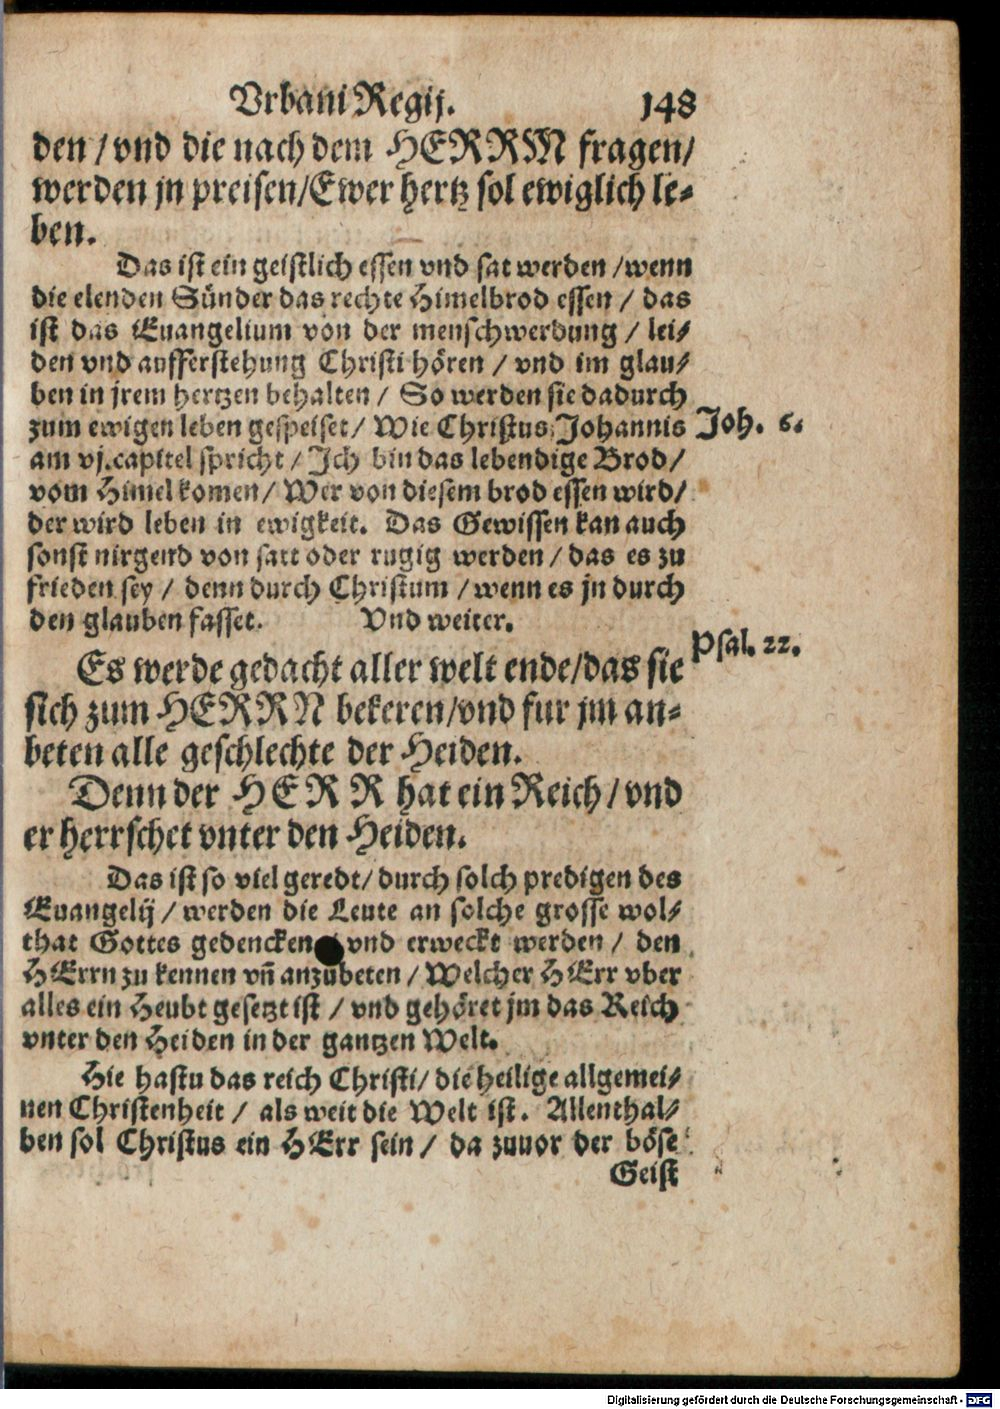 Vrbani Regij. 148
den / vnd die nach dem HERRM fragen/
werden jn preisen/Ewer hertz sol ewiglich le-
ben.
Das ist ein geistlich essen vnd sat werden /wenn
die elenden Sünder das rechte Himelbrod essen / das
ist das Euangelium von der menschwerdung / lei-
den vnd aufferstehung Christi hören / vnd im glau-
ben in jrem hertzen behalten / So werden sie dadurch
zum ewigen leben gespeiset/ Wie Christus Johannis
Joh. 6.
am vj.capitel spricht / Ich bin das lebendige Brod/
vom Himel komen/ Wer von diesem brod essen wird/
der wird leben in ewigkeit. Das Gewissen kan auch
sonst nirgend von satt oder rugig werden / das es zu
frieden sey / denn durch Christum / wenn es jn durch
den glauben fasset. Vnd weiter.
Es werde gedacht aller welt ende/das sie
Psal. 22.
sich zum HERRN bekeren/vnd fur jm an-
beten alle geschlechte der Heiden.
Denn der HERR hat ein Reich / vnd
er herrschet vnter den Heiden.
Das ist so viel geredt/ durch solch predigen des
Euangelij / werden die Leute an solche grosse wol-
that Gottes gedencken / vnd erweckt werden / den
HErrn zu kennen vñ anzubeten / Welcher HErr vber
alles ein Heubt gesetzt ist / vnd gehöret jm das Reich
vnter den Heiden in der gantzen Welt.
Hie hastu das reich Christi/ die heilige allgemei-
nen Christenheit / als weit die Welt ist. Allenthal-
ben sol Christus ein HErr sein / da zuuor der böse
Geist
Digitalisierung gefördert durch die Deutsche Forschungsgemeinschaft - DFG